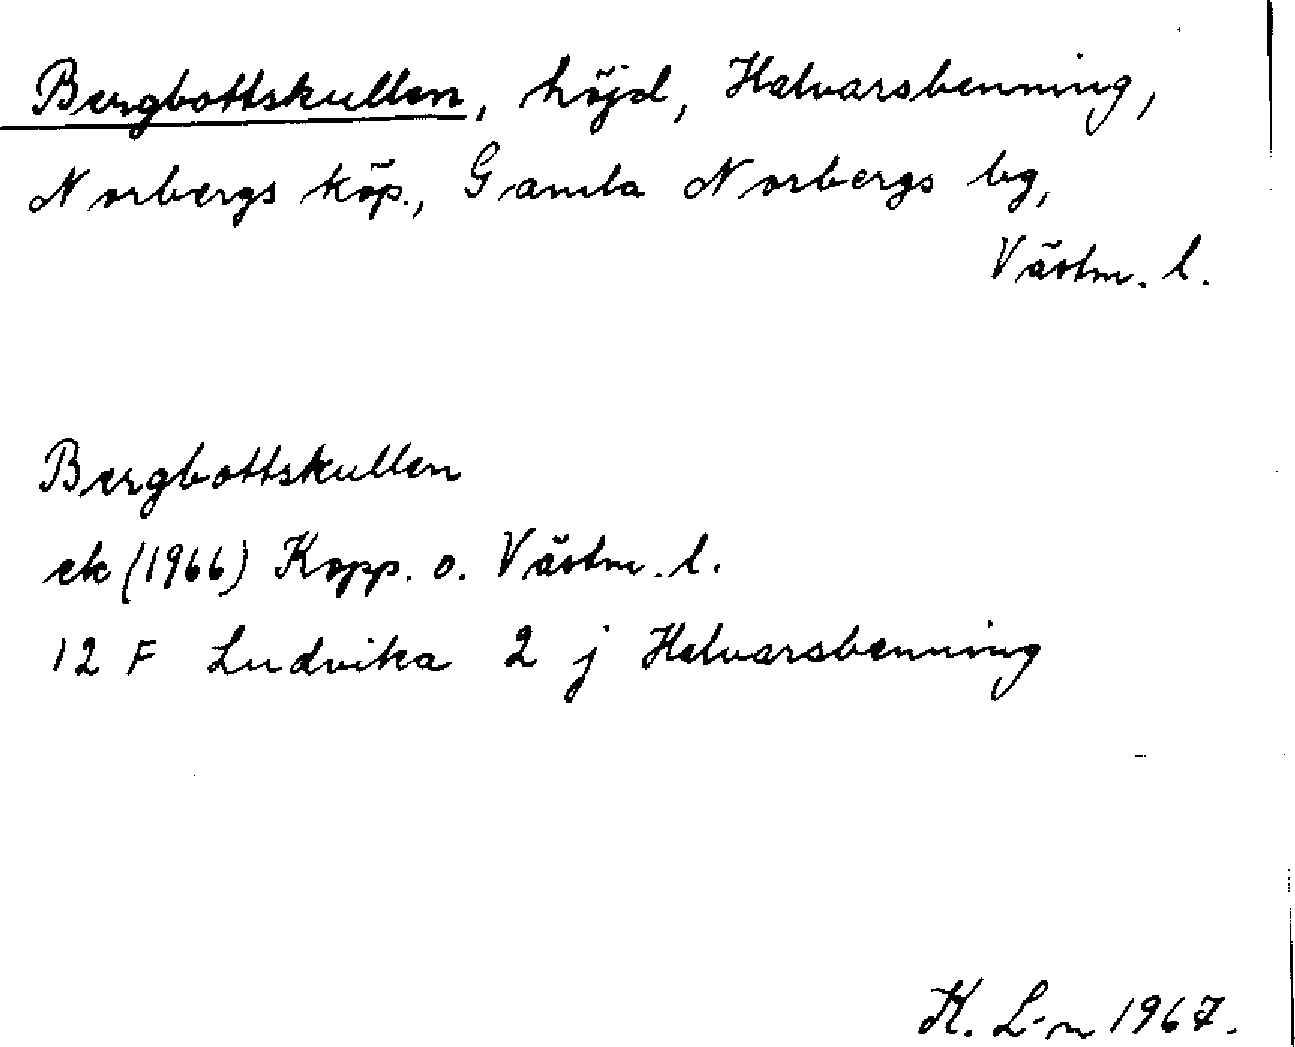 Bergbottskullen, höjd, Halvarsbenning,
Norbergs köp., Gamla Norbergs bg,
Västm. l.
Bergbottskullen
ek (1966) Kopp. o. Västm. l.
12 F Ludvika 2 j Halvarsbenning
K. L-n 1967.